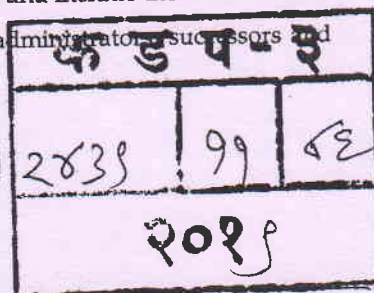 administrators, successors and
ड प - इ
२४३९ ११ ४६
२०१९